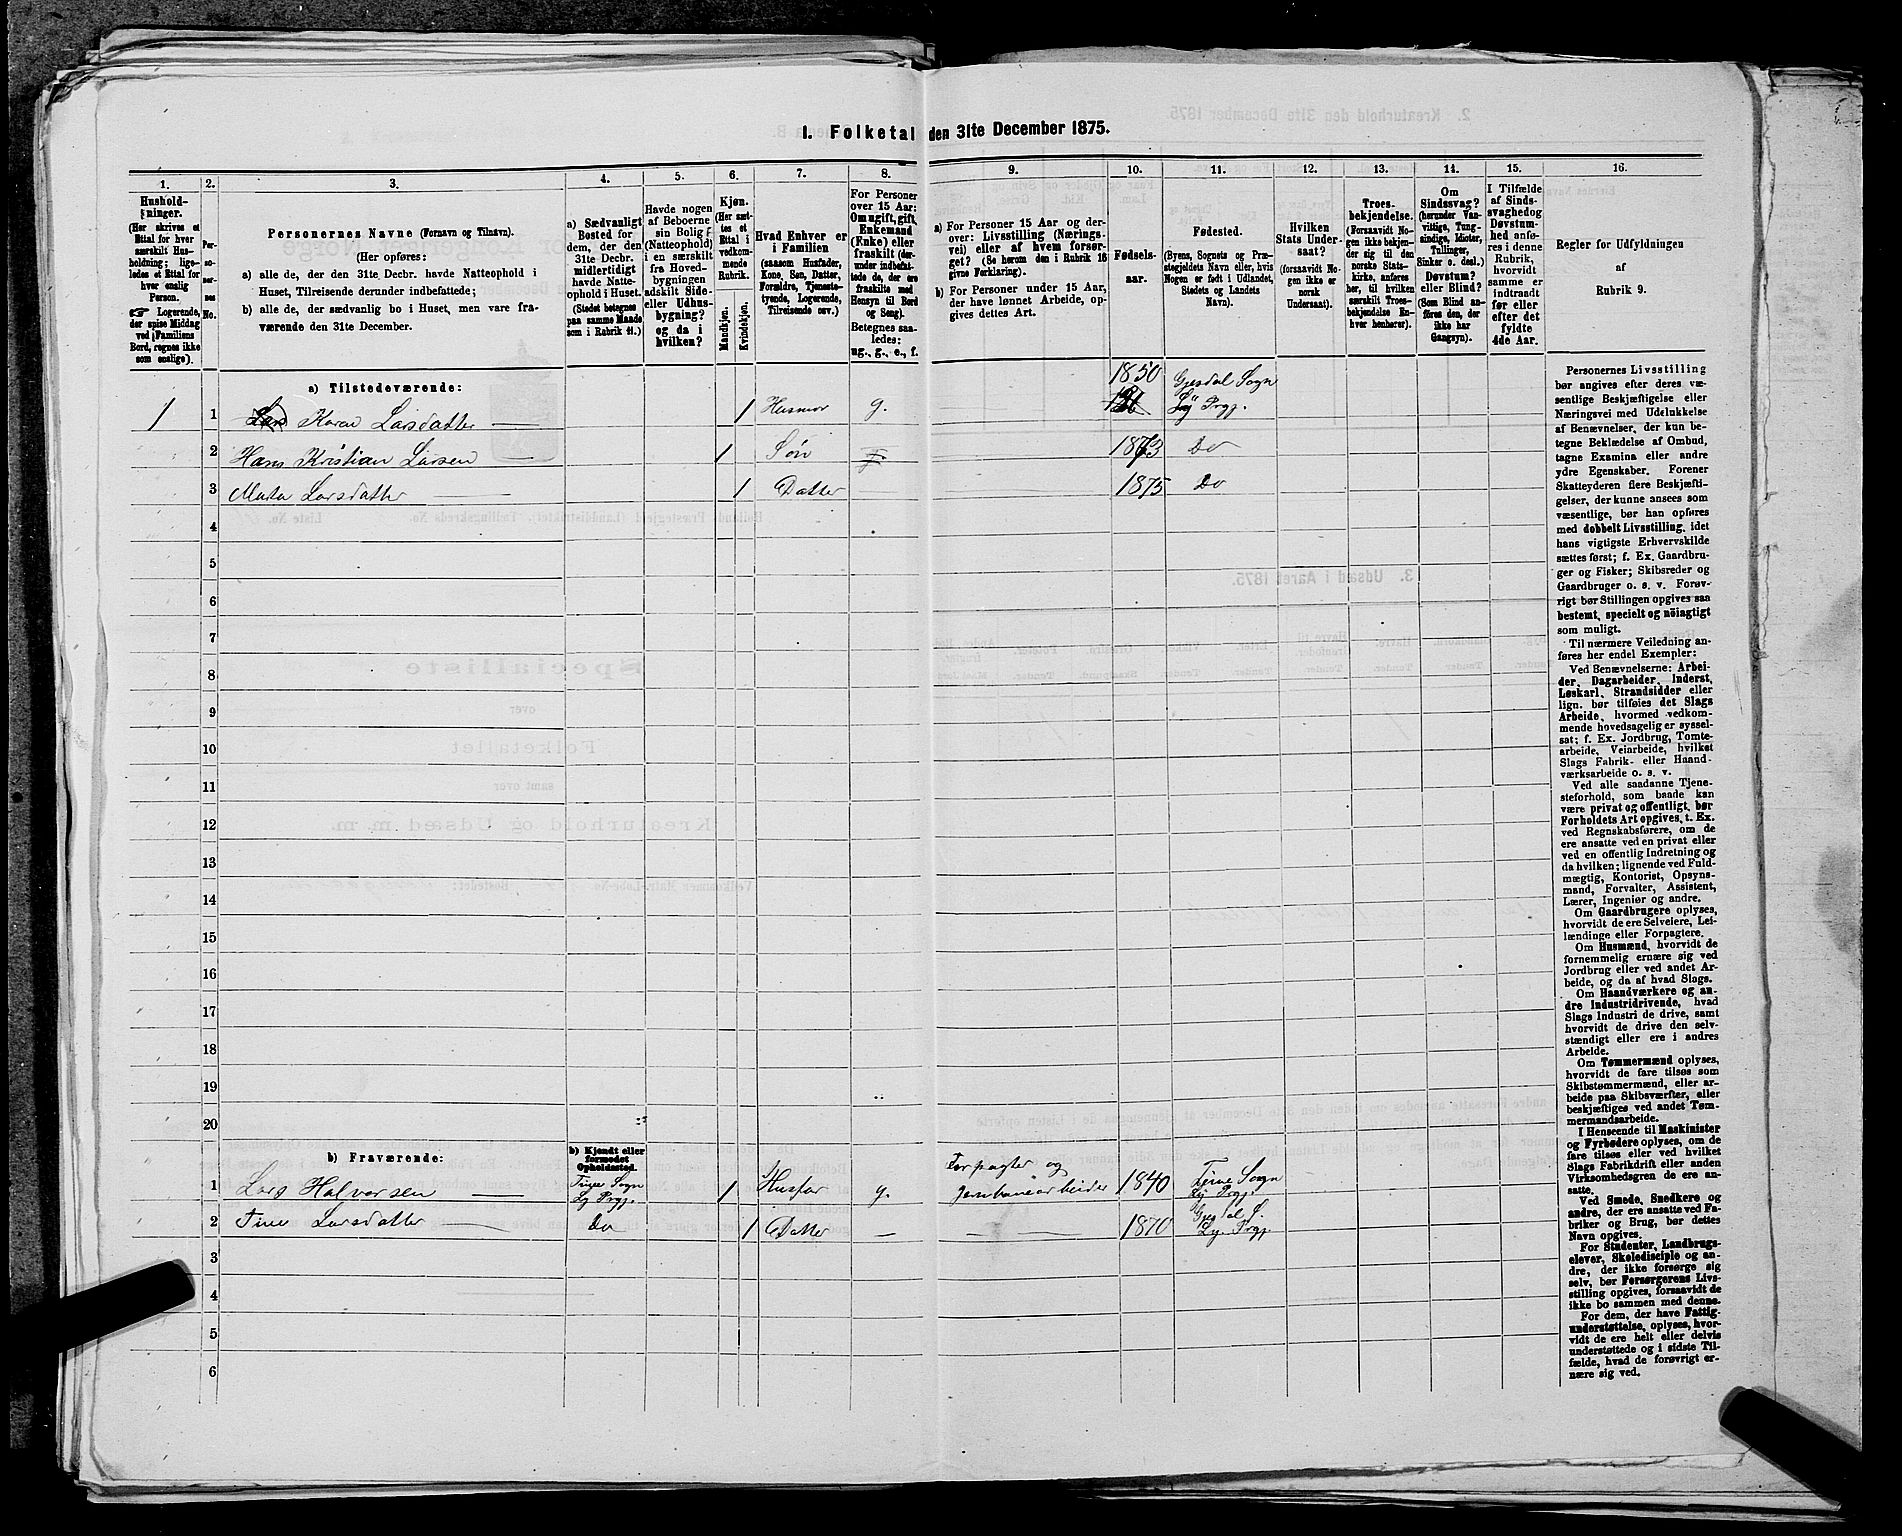 I. Folketal den 31te December 1875.
1. 2. 3. 4. 5. 6. 7. 8. 9. 10. 11. 12. 13. 14. 15. 16.
Hushold-
ninger.
(Her skrives et
Ettal for hver
særskilt Hus-
holdning; lige-
ledes et Ettal for
hver enslig
Person.
☞ Logerende,
der spise Middag
ved Familiens
Bord, regnes ikke
som enslige).
Per-
so-
ner-
nes
No.
Personernes Navne (Fornavn og Tilnavn).
(Her opføres:
a) alle de, der den 31te Decbr. havde Natteophold i
Huset, Tilreisende derunder indbefattede;
b) alle de, der sædvanlig bo i Huset, men vare fra-
værende den 31te December.
a) Sædvanligt
Bosted for
dem, der den
31te Decbr.
midlertidigt
havde Natte-
ophold i Huset.
(Stedet betegnes
paa samme Maade
som i Rubrik 11.)
Havde nogen
af Beboerne
sin Bolig
(Natteophold)
i en særskilt
fra Hoved-
bygningen
adskilt Side-
eller Udhus-
bygning?
og da i
hvilken?
Kjøn.
(Her sæt-
tes et
Ettal i
vedkom-
mende
Rubrik.
Mandkjøn.
Kvindekjøn.
Hvad Enhver er
i Familien
(saasom Husfader,
Kone, Søn, Datter,
Forældre, Tjeneste-
tyende, Logerende,
Tilreisende osv.).
For Personer
over 15 Aar:
Om ugift, gift,
Enkemand
(Enke) eller
fraskilt (der-
under indbefat-
tede de, der ere
fraskilte med
Hensyn til Bord
og Seng).
Betegnes saa-
ledes:
ug., g., e., f.
a) For Personer 15 Aar og der-
over: Livsstilling (Nærings-
vei) eller af hvem forsør-
get? (Se herom den i Rubrik 16
givne Forklaring).
b) For Personer under 15 Aar,
der have lønnet Arbeide, op-
gives dettes Art.
Fødsels-
aar.
Fødested.
(Byens, Sognets og Præ-
stegjeldets Navn eller, hvis
Nogen er født i Udlandet,
Stedets og Landets
Navn).
Hvilken
Stats Under-
saat?
(forsaavidt No-
gen ikke er
norsk
Undersaat).
Troes-
bekjendelse.
(Forsaavidt No-
gen ikke bekjen-
der sig til den
norske Stats-
kirke, anføres
her, til hvilken
særskilt Troes-
bekjendelse En-
hver henhører).
Om
Sindssvag?
(herunder Van-
vittige, Tung-
sindige, Idioter,
Tullinger,
Sinker o. desl.)
Døvstum?
eller Blind?
(Som Blind an-
føres den, der
ikke har
Gangsyn).
I Tilfælde
af Sinds-
svaghed og
Døvstum-
hed anfø-
res i denne
Rubrik,
hvorvidt
samme er
indtraadt
før eller
efter det
fyldte
4de Aar.
Regler for Udfyldningen
af
Rubrik 9.
a) Tilstedeværende:
1 1 Lars Karen Larsdatter 1 Husmor g. 1850 Gjesdal Sogn
Ly Prgj.
2 Hans Kristian Larsen 1 Søn 1873 Do
3 Marta Larsdatter 1 Datter 1875 Do
4
5
6
7
8
9
10
11
12
13
14
15
16
17
18
19
20
b) Fraværende:
b) Kjendt eller
formodet
Opholdssted.
1 Lars Halvorsen Time Sogn
Ly Prgj. 1 Husfar g. Forpagter og
Jernbanearbeider 1840 Time Sogn
Ly Prgj.
2 Tine Larsdatter Do 1 Datter 1870 Gjesdal S.
Ly Prgj
3
4
5
6
Personernes Livsstilling
bør angives efter deres væ-
sentlige Beskjæftigelse eller
Næringsvei med Udelukkelse
af Benævnelser, der kun be-
tegne Beklædelse af Ombud,
tagne Examina eller andre
ydre Egenskaber. Forener
Skatteyderen flere Beskjæfti-
gelser, der kunne ansees som
væsentlige, bør han opføres
med dobbelt Livsstilling, idet
hans vigtigste Erhvervskilde
sættes først; f. Ex. Gaardbru-
ger og Fisker; Skibsreder og
Gaardbruger o. s. v. Forøv-
rigt bør Stillingen opgives saa
bestemt, specielt og nöiagtigt
som muligt.
Til nærmere Veiledning an-
føres her endel Exempler:
Ved Benævnelserne: Arbei-
der, Dagarbeider, Inderst,
Løskarl, Strandsidder eller
lign. bør tilføies det Slags
Arbeide, hvormed vedkom-
mende hovedsagelig er syssel-
sat; f. Ex. Jordbrug, Tomte-
arbeide, Veiarbeide, hvilket
Slags Fabrik- eller Haand-
værksarbeide o. s. v.
Ved alle saadanne Tjene-
steforhold, som baade kan
være privat og offentligt, bør
Forholdets Art opgives, t. Ex.
ved Regnskabsførere, om de
ere ansatte ved en privat eller
ved en offentlig Indretning og
da hvilken; lignende ved Fuld-
mægtig, Kontorist, Opsyns-
mand, Forvalter, Assistent,
Lærer, Ingeniør og andre.
Om Gaardbrugere oplyses,
hvorvidt de ere Selveiere, Lei-
lændinge eller Forpagtere.
Om Husmænd, hvorvidt de
fornemmelig ernære sig ved
Jordbrug eller ved andet Ar-
beide, og da af hvad Slags.
Om Haandværkere og an-
dre Industridrivende, hvad
Slags Industri de drive, samt
hvorvidt de drive den selv-
stændigt eller ere i andres
Arbeide.
Om Tømmermænd oplyses,
hvorvidt de fare tilsøs som
Skibstømmermænd, eller ar-
beide paa Skibsværfter, eller
beskjæftiges ved andet Tøm-
mermandsarbeide.
I Henseende til Maskinister
og Fyrbødere oplyses, om de
fare tilsøs eller ved hvilket
Slags Fabrikdrift eller anden
Virksomhedsgren de ere an-
satte.
Ved Smede, Snedkere og
andre, der ere ansatte ved Fa-
briker og Brug, bør dettes
Navn opgives.
For Studenter, Landbrugs-
elever, Skoledisciple og an-
dre, der ikke forsørge sig
selv, bør Forsørgerens Livs-
stilling opgives, forsaavidt de
ikke bo sammen med denne.
For dem, der have Fattig-
understøttelse, oplyses, hvor-
vidt de ere helt eller delvis
understøttede og i sidste Til-
fælde, hvad de forøvrigt er-
nære sig ved.